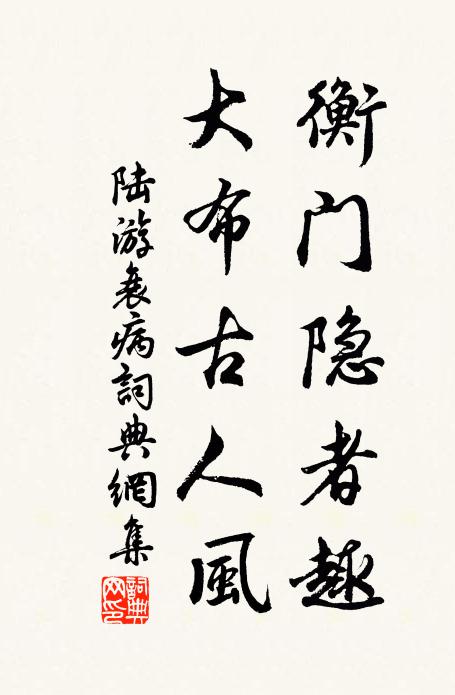 衡门隐者趣
大布古人風
陆游衰病詞典網集
詞典网印